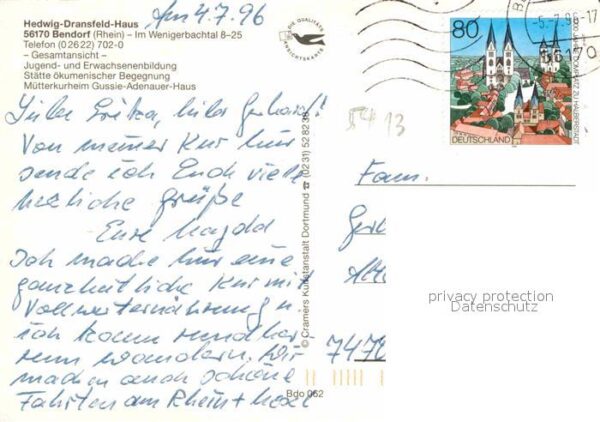 Am 4.7.96
Hedwig-Dransfeld-Haus
56170 Bendorf (Rhein) – Im Wenigerbachtal 8–25
Telefon (0 26 22) 702-0
– Gesamtansicht –
Jugend- und Erwachsenenbildung
Stätte ökumenischer Begegnung
Mütterkurheim Gussie-Adenauer-Haus
Liebe Erika, lieber Gerhard!
Von meiner Kur hier
sende ich Euch viele
herzliche Grüße
Eure Magda
Ich mache hier eine
ganzheitliche Kur mit
Vollwerternährung u
ich kann rundher-
rum wandern. Wir
machen auch schöne
Fahrten am Rhein +
DIE QUALITÄTS
ANSICHTSKARTE
© Cramers Kunstanstalt Dortmund ☎ (02 31) 52 82 38
Bdo 062
80
DOMPLATZ ZU HALBERSTADT
DEUTSCHLAND
-5.-7.96-17
56170
5413
Fam.
Ger
7472
privacy protection
Datenschutz